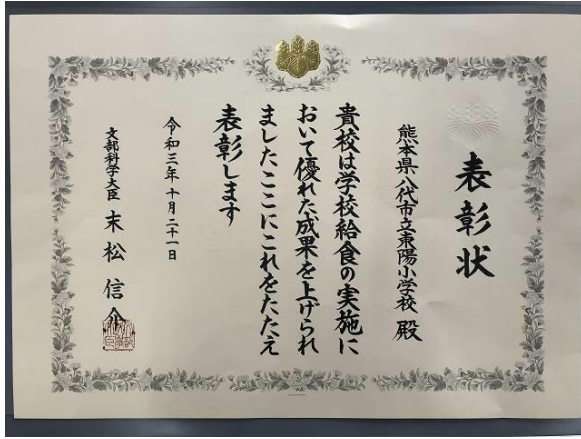 表彰状
熊本県八代市立東陽小学校 殿
貴校は学校給食の実施に
おいて優れた成果を上げられ
ましたここにこれをたたえ
表彰します
令和三年十月二十一日
文部科学大臣 末松信介